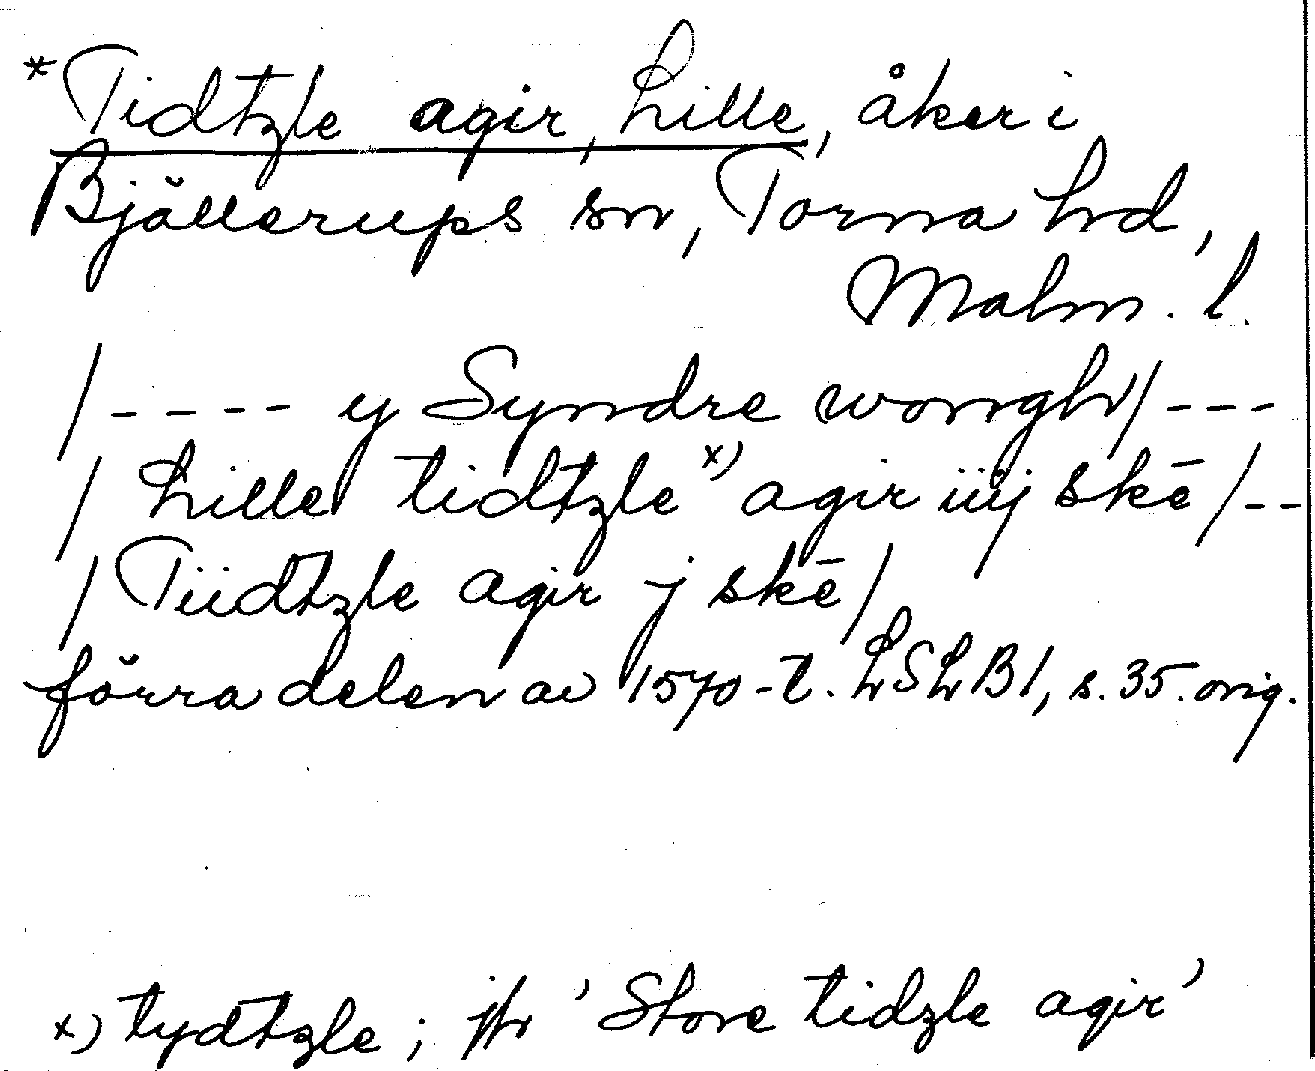 *Tidtzle agir, Lille, åker i
Bjällerups sn, Torna hd,
Malm. l.
/---- y Syndre wongh/---
/ Lille tidtzle x) agir iiij skē /--
/ Tiidtzle agir j skē /
förra delen av 1570-t. LSLB1, s. 35. orig.
x) tydtzle ; jfr 'Store tidzle agir'